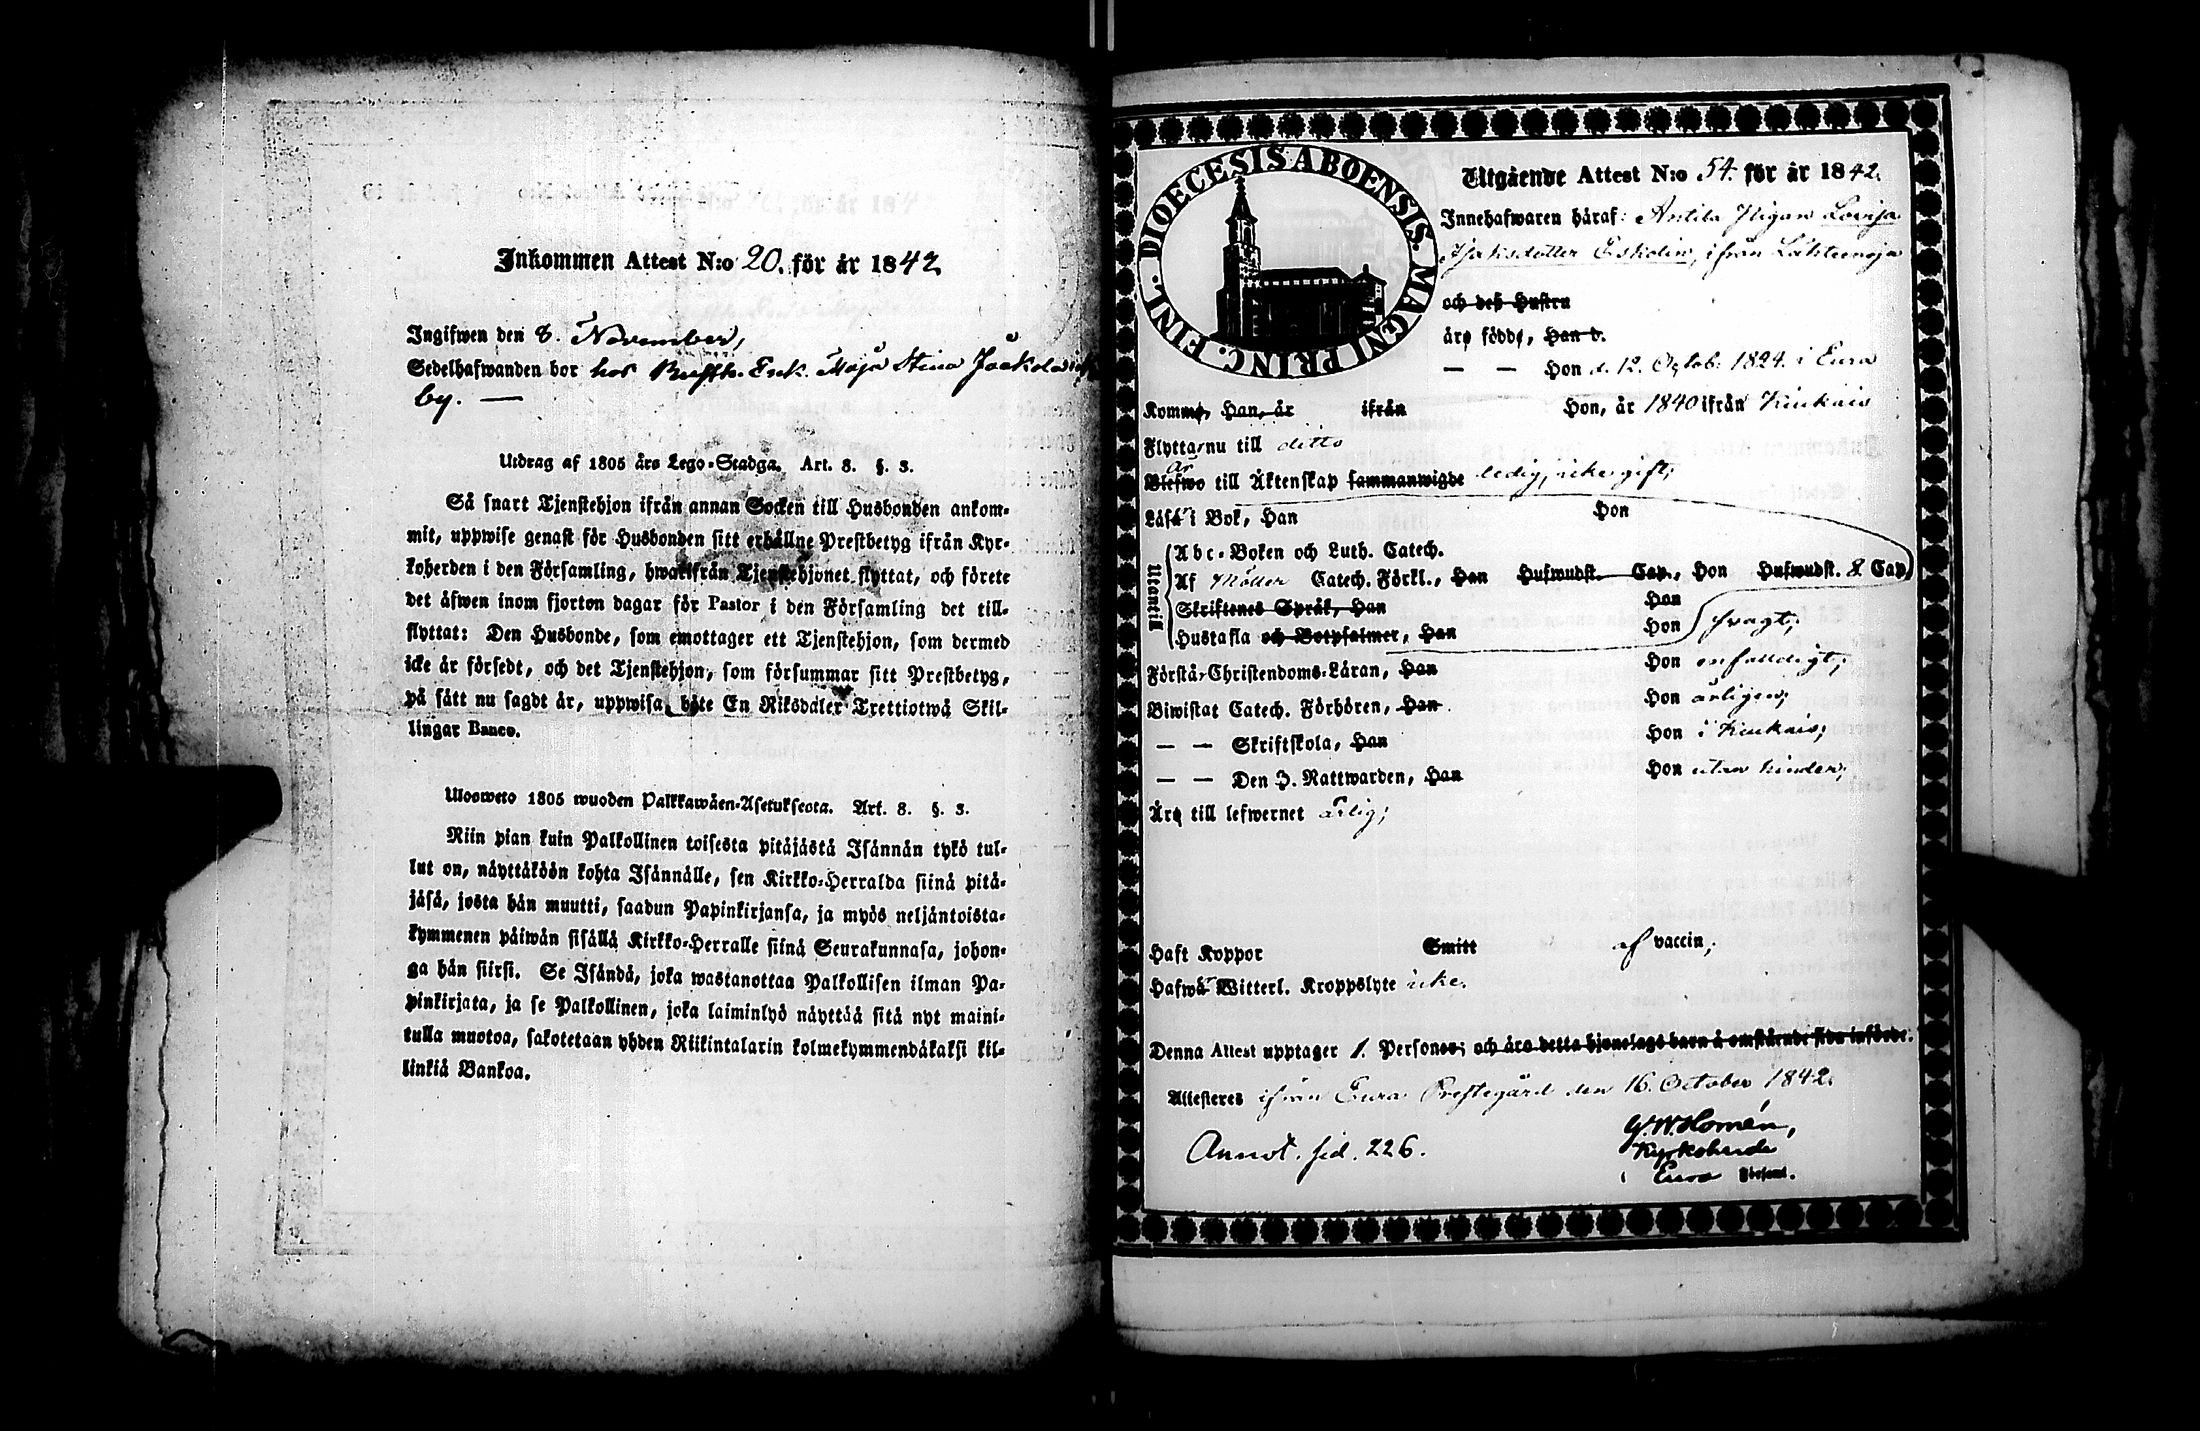 Inkommen Attest N:o 20. för år 1842.
Ingifwen den 8. November,
Sedelhafwanden bor hos Enk. Maja Stina Jaakola
by. —
Utdrag af 1805 års Lego-Stadga. Art. 8. §. 3.
Så snart Tjenstehjon ifrån annan Socken till Husbonden ankom-
mit, uppwise genast för Husbonden sitt erhållne Prestbetyg ifrån Kyr-
koherden i den Församling, hwarifrån Tjenstehjonet flyttat, och förete
det äfwen inom fjorton dagar för Pastor i den Församling det till-
flyttat: Den Husbonde, som emottager ett Tjenstehjon, som dermed
icke är försedt, och det Tjenstehjon, som försummar sitt Prestbetyg,
på sätt nu sagdt är, uppwisa, böte En Riksdaler Trettiotwå Skil-
lingar Banco.
Ulosweto 1805 wuoden Palkkawäen-Asetuksesta. Art. 8. §. 3.
Niin pian kuin Palkollinen toisesta pitäjästä Isännän tykö tul-
lut on, näyttäköön kohta Isännälle, sen Kirkko-Herralda siinä pitä-
jäsä, josta hän muutti, saadun Papinkirjansa, ja myös neljäntoista-
kymmenen päiwän sisällä Kirkko-Herralle siinä Seurakunnasa, johon-
ga hän siirsi. Se Isändä, joka wastanottaa Palkollisen ilman Pa-
pinkirjata, ja se Palkollinen, joka laiminlyö näyttää sitä nyt maini-
tulla muotoa, sakotetaan yhden Riikintalarin kolmekymmendäkaksi kil-
linkiä Bankoa.
DIOECESIS ABOENSIS. MAGNI PRINC. FINL.
Utgående Attest N:o 54. för år 1842.
Innehafwaren häraf: Antila Pigan Lovisa
Isaksdotter Eskolin, ifrån Lähteenoja
och deß Hustru
äro födde, Han d.
— — Hon d. 12. Octob. 1824. i Eura
Komne, Han, år ifrån Hon, år 1840 ifrån Kiukais
Flytta nu till ditto
är
Blefwo till Äktenskap sammanwigde ledig, icke gift;
Läsa i Bok, Han Hon
Utantill
Abc-Boken och Luth. Catech.
Af Möller Catech. Förkl., Han Hufwudst. Cap., Hon Hufwudst. 8. Cap.
Skriftenes Språk, Han Hon
Hustafla och Botpsalmer, Han Hon svagt;
Förstå Christendoms-Läran, Han Hon enfaldigt;
Biwistat Catech. Förhören, Han Hon årligen;
— — Skriftskola, Han Hon i Kiukais;
— — Den H. Nattwarden, Han Hon utan hinder;
Äro till lefwernet ärlig;
Haft Koppor Smitt af vaccin;
Hafwa Witterl. Kroppslyte icke.
Denna Attest upptager 1. Personer; och äro detta hjonelags barn å omstående sida införde.
Attesteres ifrån Eura Prestegård den 16. October 1842.
Annot. sid. 226.
G. W. Homén,
Kyrkoherde
i Eura Församl.